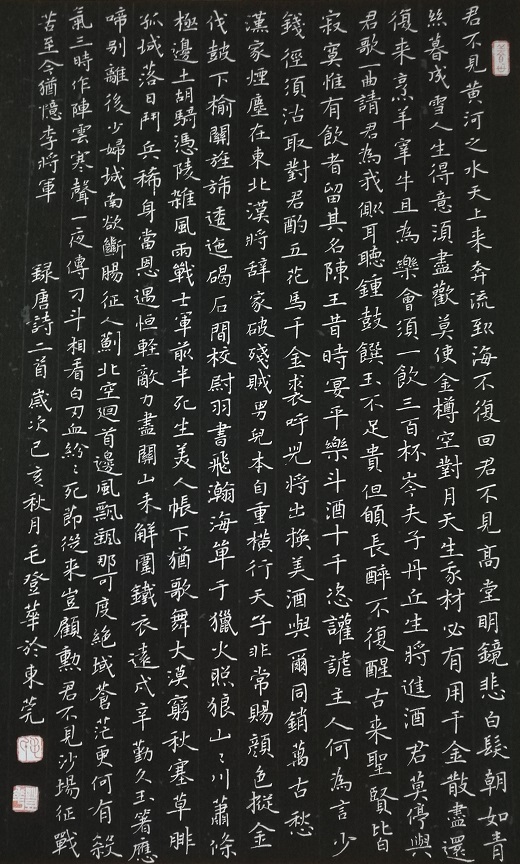 君不見黃河之水天上来奔流到海不復回君不見高堂明鏡悲白髮朝如青
絲暮成雪人生得意湏盡歡莫使金樽空對月天生我材必有用千金散盡還
復来烹羊宰牛且為樂會須一飲三百杯岑夫子丹丘生將進酒君莫停與
君歌一曲請君為我傾耳聽鍾鼓饌玉不足貴但願長醉不復醒古来聖賢皆
寂寞惟有飲者留其名陳王昔時宴平樂斗酒十千恣讙謔主人何為言少
錢徑須沽取對君酌五花馬千金裘呼兒將出換美酒與爾同銷萬古愁
漢家煙塵在東北漢將辭家破殘賊男兒本自重橫行天子非常賜顔色摐金
伐鼓下榆關旌旆逶迤碣石間校尉羽書飛瀚海單于獵火照狼山ミ川蕭條
極邊土胡騎憑陵雜風雨戰士軍前半死生美人帳下猶歌舞大漠窮秋塞草腓
孤城落日鬥兵稀身當恩遇恒輕敵力盡關山未解圍鐵衣遠戍辛勤久玉箸應
啼别離後少婦城南欲斷腸征人薊北空迴首邊風飄飄那可度絕域蒼茫更何有殺
氣三時作陣雲寒聲一夜傳刁斗相看白刃血紛ミ死節從来豈顧勳君不見沙場征戰
苦至今猶憶李將軍
録唐詩二首歲次己亥秋月毛登華於東莞